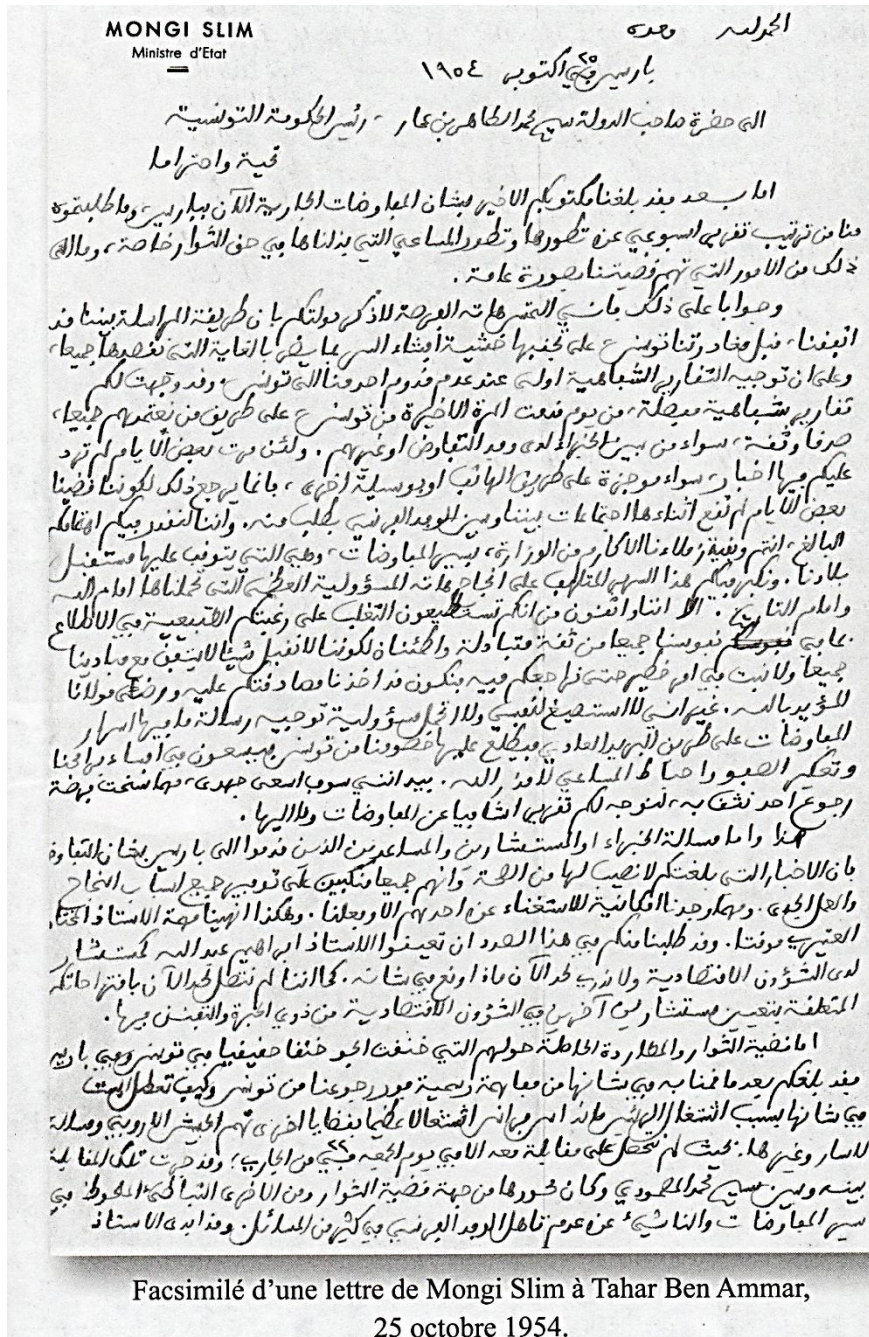 MONGI SLIM
Ministre d'Etat
الحمد لله وحده
باريس في 25 اكتوبر ١٩٥٤
الى حضرة صاحب الدولة سيدي محمد الطاهر بن عمار، رئيس الحكومة التونسية
تحية واحتراما
اما بعد فقد بلغنا مكتوبكم الاخير بشان المفاوضات الجارية الآن بباريس، وما طلبتموه
منا من ترتيب تقرير اسبوعي عن تطورها وتطور المساعي التي بذلناها في حق الثوار خاصة، وما الى
ذلك من الامور التي تهم قضيتنا بصورة عامة.
وجوابا على ذلك فانني التمس هاته الفرصة لاذكر دولتكم بان طريقة المراسلة بيننا قد
اتفقنا، قبل مغادرتنا تونس على تجنبها خشية افشاء السر مما يضر بالغاية التي نقصدها جميعا،
وعلى ان توجيه التقارير الشفاهية اولى عند عدم قدوم احدنا الى تونس، وقد وجهت لكم
تقارير شفاهية مفصلة، من يوم قدمت المرة الاخيرة من تونس على طريق من نعتمدهم جميعا،
صدقا وثقة، سواء من بين الخبراء لدى وفد التفاوض او غيرهم. ولئن مرت بعض الأيام لم ترد
عليكم فيها اخبار، سواء موجزة على طريق الهاتف او بوسيلة اخرى، فانما يرجع ذلك لكوننا قضينا
بعض الأيام لم تقع اثناءها اجتماعات بيننا وبين الوفد الفرنسي بطلب منه. واننا لنقدر فيكم اهتمامكم
البالغ، انتم وبقية زملاءنا الاكارم من الوزارة، بسير المفاوضات، وهي التي يتوقف عليها مستقبل
بلادنا. ونكبر فيكم هذا السهر المتلهف على انجاح هاته المسؤولية العظمى التي تحملناها امام الله
وامام التاريخ. الا اننا واثقون من انكم تستطيعون التغلب على رغبتكم الطبيعية في الاطلاع
بما في نفوسنا جميعا من ثقة متبادلة واطمئنان لكوننا لا نقبل شيئا لا يتفق مع مبادينا
جميعا ولا نبت في امر خطير حتى نراجعكم فيه فنكون قد اخذنا مصادقتكم عليه ورضى مولانا
المؤيد بالله. غير انني لا استصيغ لنفسي ولا اتحمل مسؤولية توجيه رسالة ما فيها اسرار
المفاوضات على طريق البريد العادي فيطلع عليها خصومنا من تونس فيسعون في افساد برامجنا
وتعكير الصفو واحباط المساعي لا قدر الله. بيد انني سوف اسعى جهدي، مهما سنحت فرصة
رجوع احد نثق به، لنوجه لكم تقريرا شافيا عن المفاوضات وما اليها.
هذا واما مسالة الخبراء او المستشارين والمساعدين الذين قدموا الى باريس بشان التفاوض
فان الاخبار التي بلغتكم لا نصيب لها من الصحة وانهم جميعا منكبين على توفير جميع اسباب النجاح
والعمل الجدي. ومهما وجدنا امكانية للاستغناء عن احدهم الا وفعلنا. وهكذا انهينا مهمة الاستاذ المختار
العتيري موقتا. وقد طلبنا منكم في هذا الصدد ان تعينوا الاستاذ ابراهيم عبد الله كمستشار
لدى الشؤون الاقتصادية ولا ندري لحد الآن ماذا وقع في شانه. كما اننا لم نتصل لحد الآن باقتراحاتكم
المتعلقة بتعيين مستشارين آخرين في الشؤون الاقتصادية من ذوي الخبرة والتفنن فيها.
اما قضية الثوار والمطاردة الحاصلة حولهم التي خنقت الجو خنقا حقيقيا في تونس وفي باريس
فقد بلغكم بعد ما قمنا به في شانها من مفاهمة رسمية فور رجوعنا من تونس وكيف تعطل البت
في شانها بسبب اشتغال الرئيس مانداس فرانس اشتغالا عظيما بقضايا اخرى تهم الجيش الاروبي ومسالة
السار وغيرها. بحيث لم نتحصل على مقابلة معه الا في يوم الجمعة 22 من الجاري؛ وقد جرت تلك المقابلة
بينه وبين سيدي محمد المصمودي وكان محورها من جهة قضية الثوار ومن الاخرى التباطئ الملحوظ في
سير المفاوضات والناشئ عن عدم تاهل الوفد الفرنسي في كثير من المسائل. وقد ابدى الاستاذ
Facsimilé d'une lettre de Mongi Slim à Tahar Ben Ammar,
25 octobre 1954.